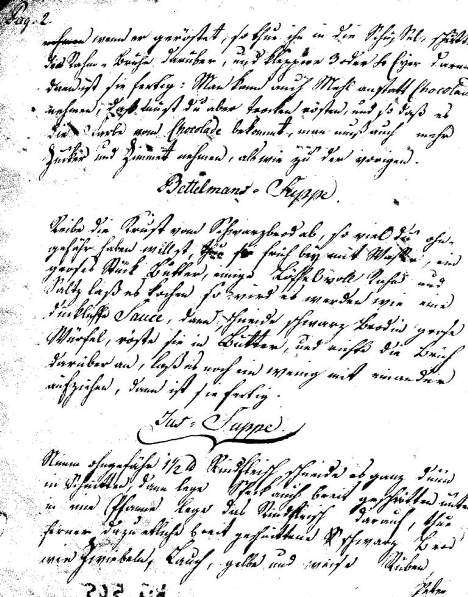 Pag. 2.
nehmen wenn er geröstet, so thue ihn in die Schüssel, schütte
die Rahm-Brühe darüber, und klopfe 3 oder 4 Eyer daran
dann ist sie fertig. Man kann auch Mehl anstatt Chocolade
nehmen, das mußt du aber trocken rösten, und so daß es
die Farbe vom Chocolade bekommt, man muß auch mehr
Zucker und Zimmet nehmen, als wie zu der vorigen.
Bettelmans-Suppe.
Reibe die Krust vom Schwarzbrod ab, so viel du ohn-
gefähr haben willst, bey mit Wasser, ein
großes Stück Butter, einige Löffel voll Rahm und
Saltz laß es kochen so wird es werden wie eine
dicklichte Sauce, dann schneide schwarz Brod in große
Würfel, röste sie in Butter, und richte die Brüh
darüber an, laß es noch ein wenig mit einander
aufziehen, dann ist sie fertig.
Jus-Suppe.
Nimm ohngefähr 1 1/2 lb Rindfleisch schneide es ganz dünn
in Schnitten, dann lege Speck auch breit geschnitten unten
in eine Pfanne lege das Rindfleisch darauf, thue
ferner dazu etliche breit geschnittene schwarz Brod
wie Zwiebeln, Lauch, gelbe und weise Rüben,